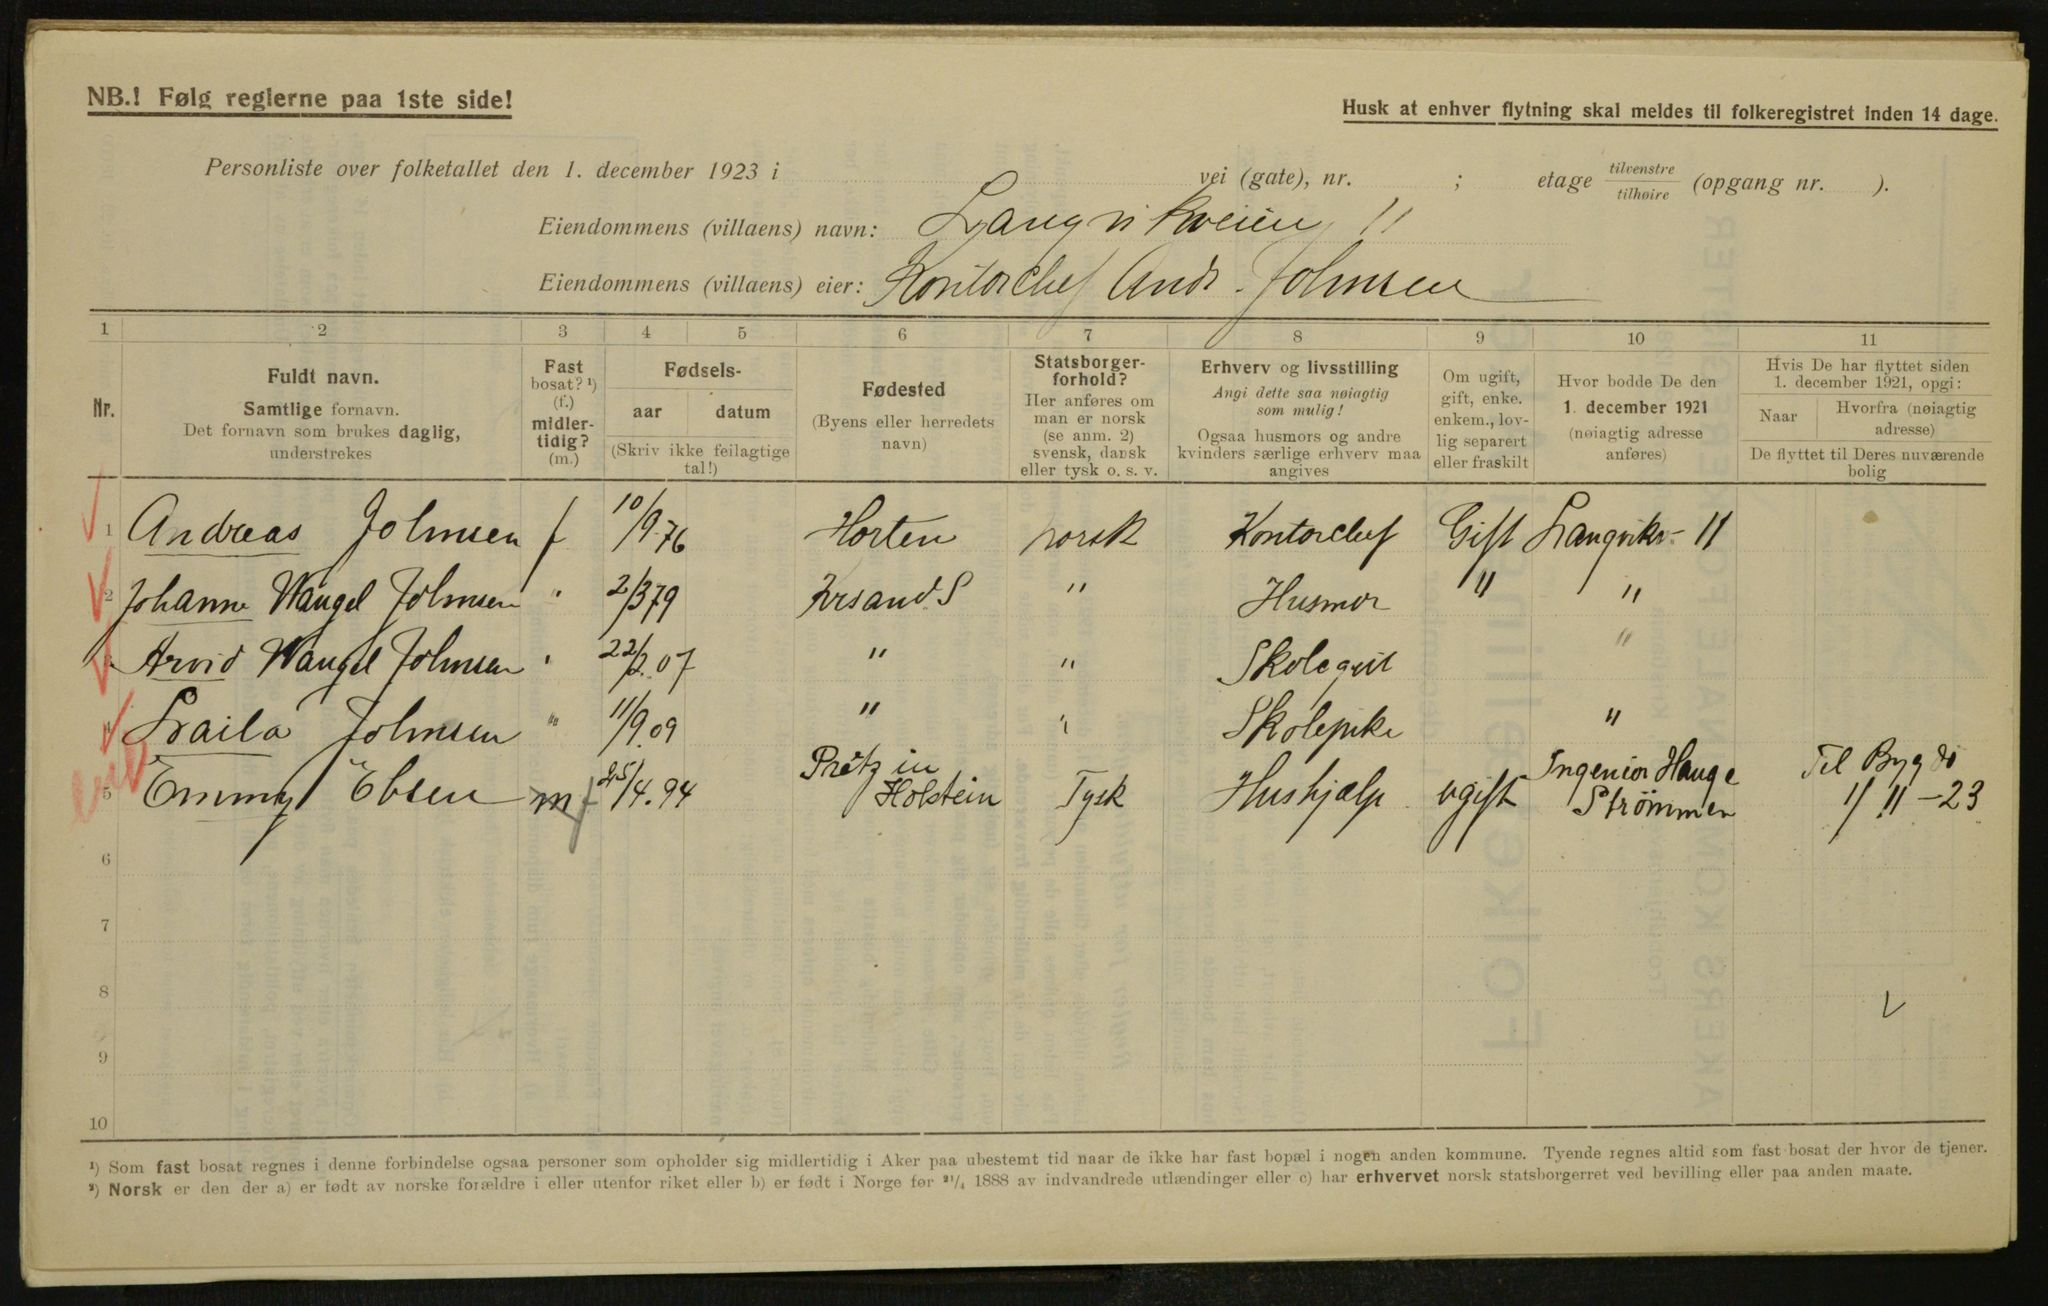 NB.! Følg reglerne paa 1ste side!
Husk at enhver flytning skal meldes til folkeregistret inden 14 dage.
Personliste over folketallet den 1. december 1923 i vei (gate), nr. ; etage tilvenstre tilhøire (opgang nr. ).
Eiendommens (villaens) navn: Langvikveien 11
Eiendommens (villaens) eier: Kontorchef Andr. Johnsen
1 2 3 4 5 6 7 8 9 10 11
Nr.
Fuldt navn.
Samtlige fornavn.
Det fornavn som brukes daglig,
understrekes
Fast
bosat? ¹)
(f.)
midler-
tidig?
(m.)
Fødsels-
aar datum
(Skriv ikke feilagtige
tal!)
Fødested
(Byens eller herredets
navn)
Statsborger-
forhold?
Her anføres om
man er norsk
(se anm. 2)
svensk, dansk
eller tysk o. s. v.
Erhverv og livsstilling
Angi dette saa nøiagtig
som mulig!
Ogsaa husmors og andre
kvinders særlige erhverv maa
angives
Om ugift,
gift, enke.
enkem., lov-
lig separert
eller fraskilt
Hvor bodde De den
1. december 1921
(nøiagtig adresse
anføres)
Hvis De har flyttet siden
1. december 1921, opgi:
Naar Hvorfra (nøiagtig
adresse)
De flyttet til Deres nuværende
bolig
1 Andreas Johnsen f 10/9 76 Horten norsk Kontorchef Gift Langvikv. 11
2 Johanne Wangel Johnsen " 2/3 79 Krsand S " Husmor " "
3 Arvid Wangel Johnsen " 22/2.07 " " Skolegut "
4 Laila Johnsen " 11/9.09 " " Skolepike "
5 Emmy Ebsen m f 25/4.94 Prëtz in Holstein Tysk Hushjælp ugift Ingeniør Hauge Strømmen Til Bygdø 1/11-23
6
7
8
9
10
¹) Som fast bosat regnes i denne forbindelse ogsaa personer som opholder sig midlertidig i Aker paa ubestemt tid naar de ikke har fast bopæl i nogen anden kommune. Tyende regnes altid som fast bosat der hvor de tjener.
²) Norsk er den der a) er født av norske forældre i eller utenfor riket eller b) er født i Norge før ²¹/₄ 1888 av indvandrede utlændinger eller c) har erhvervet norsk statsborgerret ved bevilling eller paa anden maate.